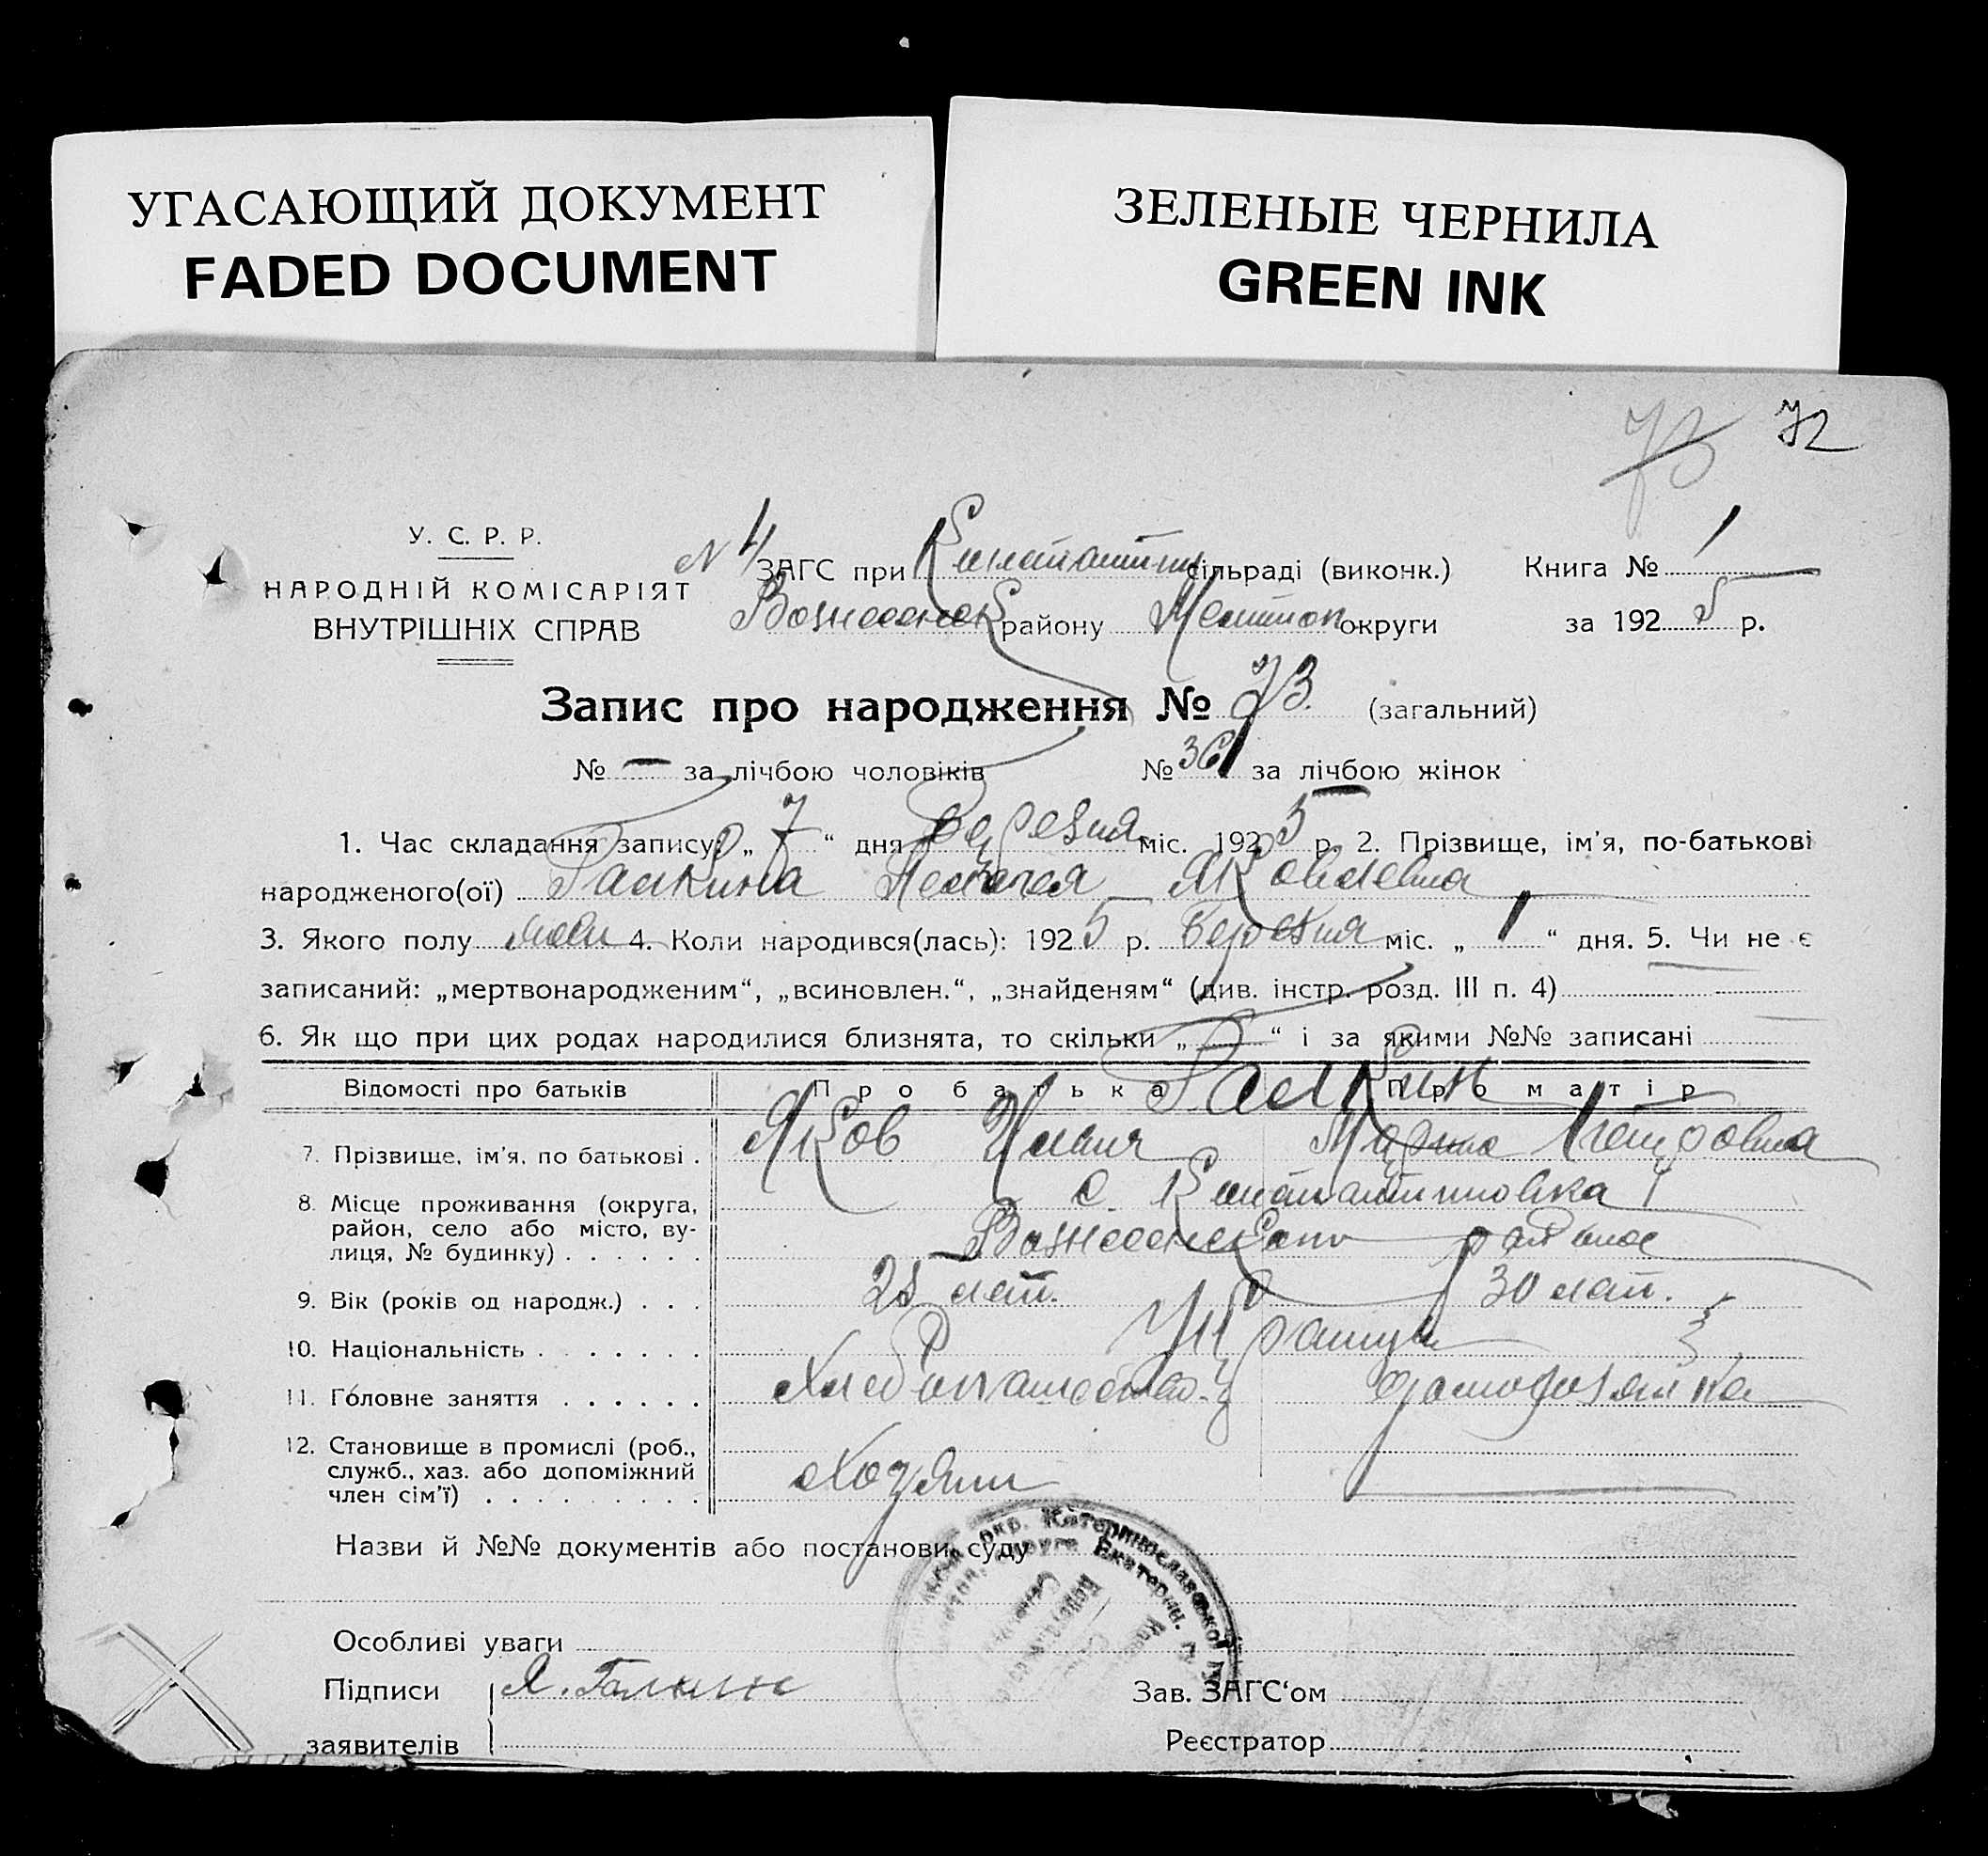 УГАСАЮЩИЙ ДОКУМЕНТ
FADED DOCUMENT
ЗЕЛЕНЫЕ ЧЕРНИЛА
GREEN INK
73 72
У. С. Р. Р.
НАРОДНІЙ КОМІСАРІЯТ
ВНУТРІШНІХ СПРАВ
N 4 ЗАГС при Константин сільраді (виконк.) Книга № 1
Вознесенск району Мелитоп округи за 1925 р.
Запис про народження № 73 (загальний)
№ — за лічбою чоловіків № 36 за лічбою жінок
1. Час складання запису: „ 7 “ дня березня міс. 1925 р. 2. Прізвище, ім'я, по-батькові
народженого(ої) Галкина Пелагея Яковлевна
3. Якого полу 4. Коли народився(лась): 1925 р. Березня міс. „ 1 “ дня. 5. Чи не є
записаний: „мертвонародженим“, „всиновлен.“, „знайденям“ (див. інстр. розд. III п. 4)
6. Як що при цих родах народилися близнята, то скільки „ — “ і за якими №№ записані
Відомості про батьків Про батька Про матір
Галкин
7. Прізвище, ім'я, по батькові . Яков Ильич Мария Петровна
8. Місце проживання (округа, район, село або місто, вулиця, № будинку) . . . . . .
с. Константиновка
Вознесенского району
9. Вік (років од народж.) . . . 28 лет. 30 лет.
10. Національність . . . . . . .
11. Головне заняття . . . . . . Хлебопашество
12. Становище в промислі (роб., служб., хаз. або допоміжний член сім'ї) . . . . . . . . .
Хозяин
Назви й №№ документів або постанови суду
Особливі уваги
Підписи Я. Галкин
заявителів
Зав. ЗАГС‘ом
Реєстратор